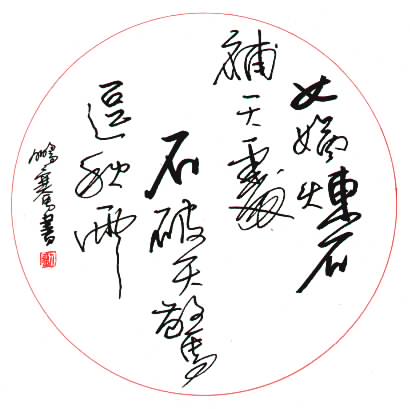 女媧煉石
補天處
石破天驚
逗秋雨
鵬騫書